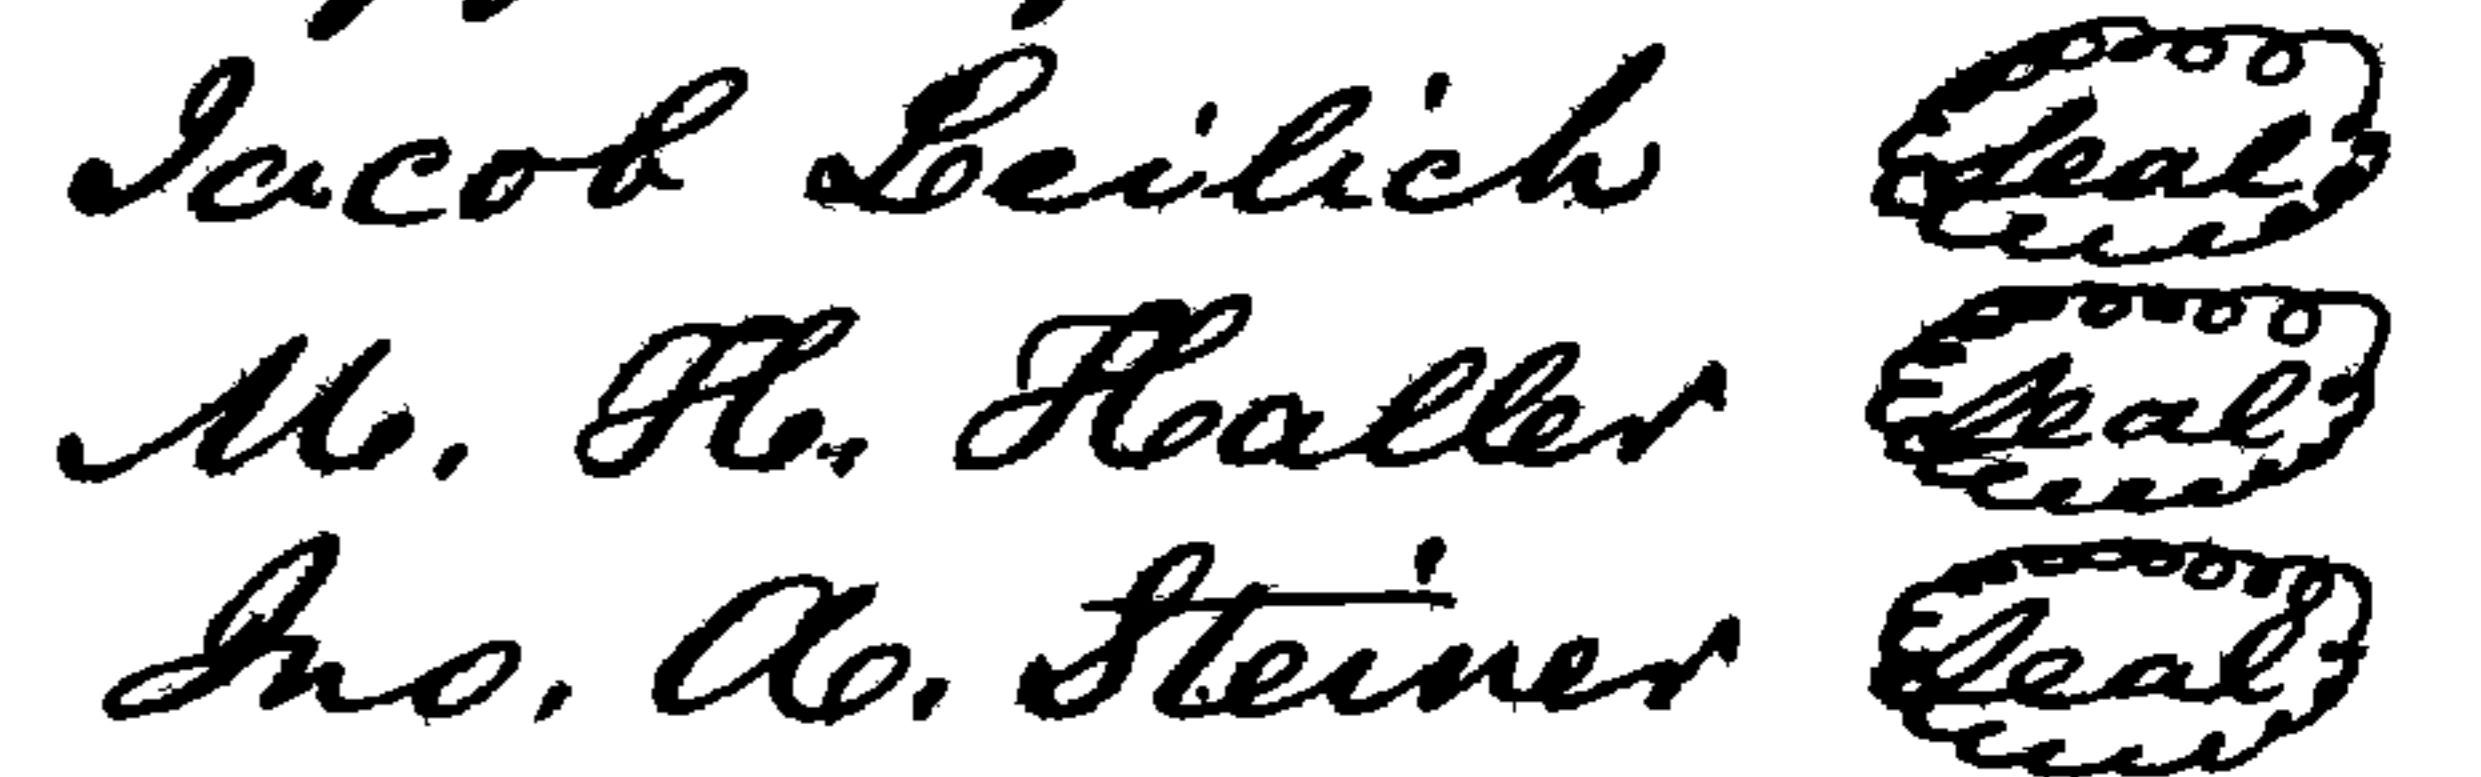 Jacob Leilich Seal
M. H. Haller Seal
Jno. A. Steiner Seal